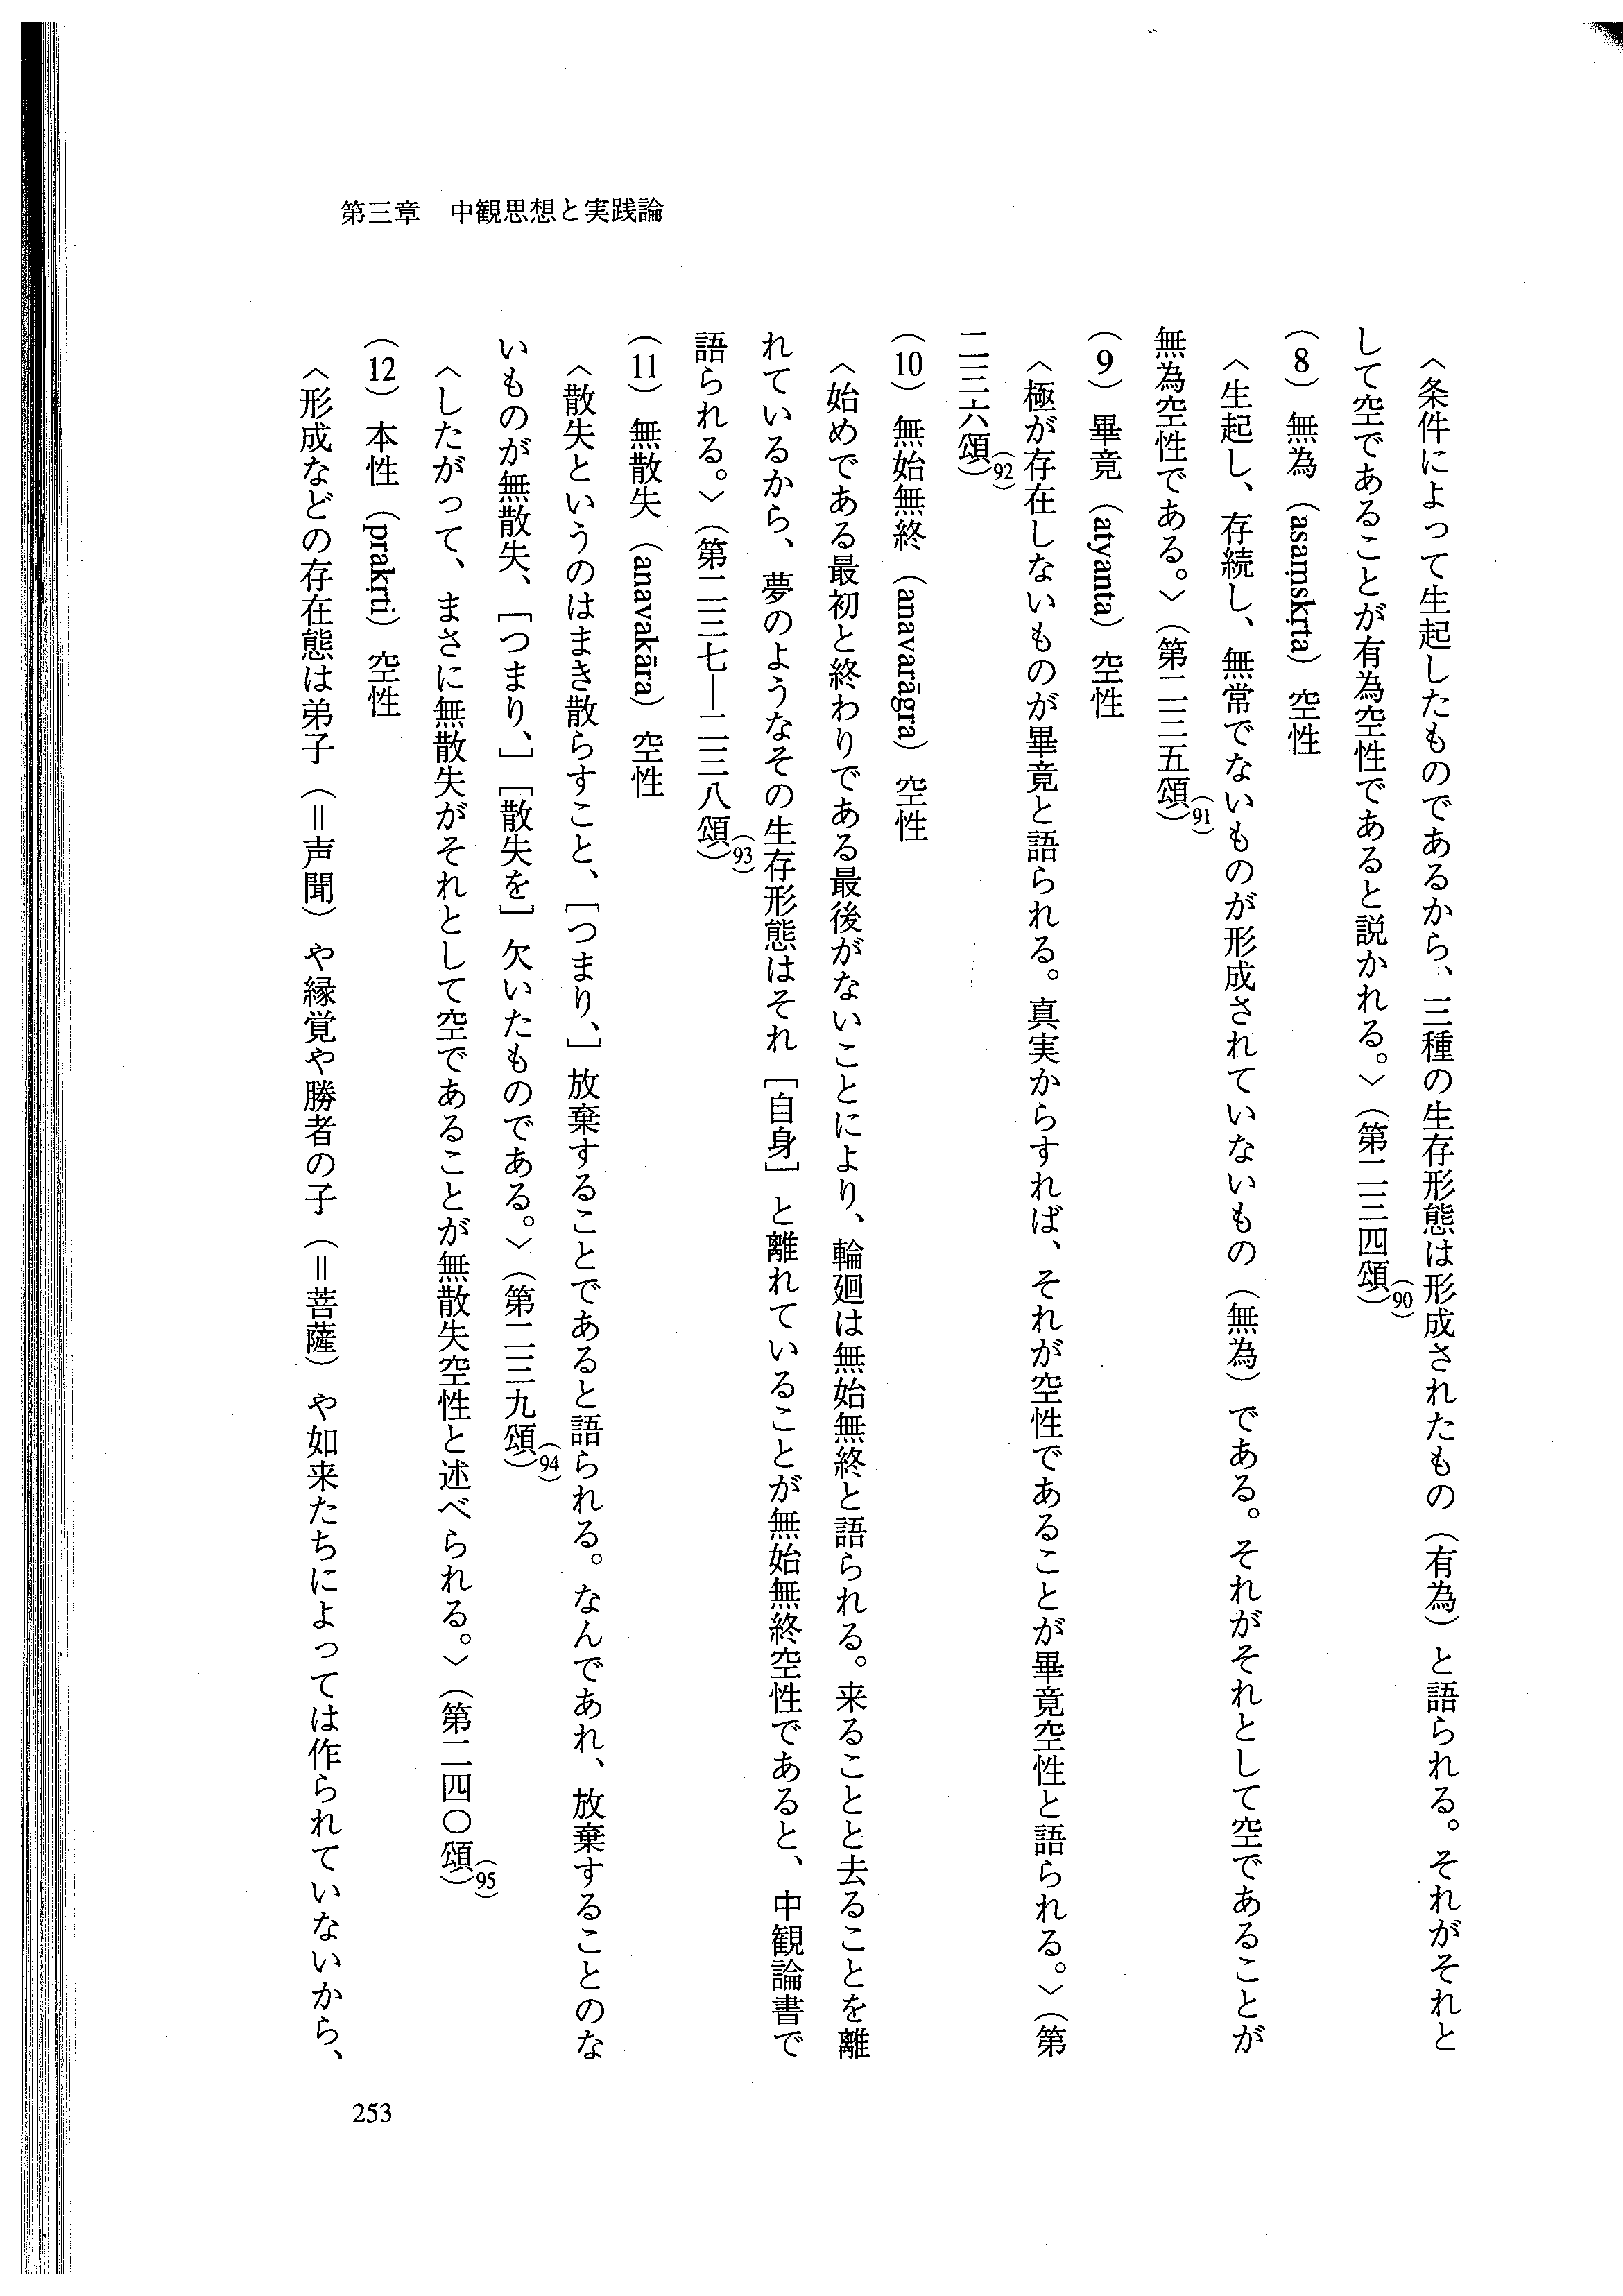 第三章　中観思想と実践論
〈条件によって生起したものであるから、三種の生存形態は形成されたもの（有為）と語られる。それがそれと
して空であることが有為空性であると説かれる。〉（第二三四頌）(90)
（8）無為（asaṃskṛta）空性
〈生起し、存続し、無常でないものが形成されていないもの（無為）である。それがそれとして空であることが
無為空性である。〉（第二三五頌）(91)
（9）畢竟（atyanta）空性
〈極が存在しないものが畢竟と語られる。真実からすれば、それが空性であることが畢竟空性と語られる。〉（第
二三六頌）(92)
（10）無始無終（anavarāgra）空性
〈始めである最初と終わりである最後がないことにより、輪廻は無始無終と語られる。来ることと去ることを離
れているから、夢のようなその生存形態はそれ［自身］と離れていることが無始無終空性であると、中観論書で
語られる。〉（第二三七―二三八頌）(93)
（11）無散失（anavakāra）空性
〈散失というのはまき散らすこと、［つまり、］放棄することであると語られる。なんであれ、放棄することのな
いものが無散失、［つまり、］［散失を］欠いたものである。〉（第二三九頌）(94)
〈したがって、まさに無散失がそれとして空であることが無散失空性と述べられる。〉（第二四〇頌）(95)
（12）本性（prakṛti）空性
〈形成などの存在態は弟子（＝声聞）や縁覚や勝者の子（＝菩薩）や如来たちによっては作られていないから、
253